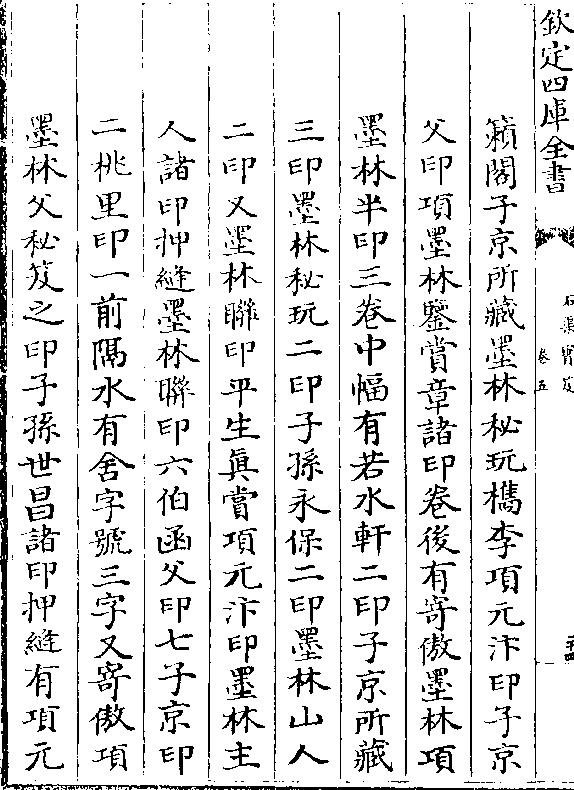 欽定四庫全書
石渠寶笈
卷五
籟閣子京所藏墨林秘玩檇李項元汴印子京
父印項墨林鑒賞章諸印卷後有寄傲墨林項
墨林半印三卷中幅有若水軒二印子京所藏
三印墨林秘玩二印子孫永保二印墨林山人
二印又墨林聯印平生真賞項元汴印墨林主
人諸印押縫墨林聯印六伯函父印七子京印
二桃里印一前隔水有舍字號三字又寄傲項
墨林父秘笈之印子孫世昌諸印押縫有項元